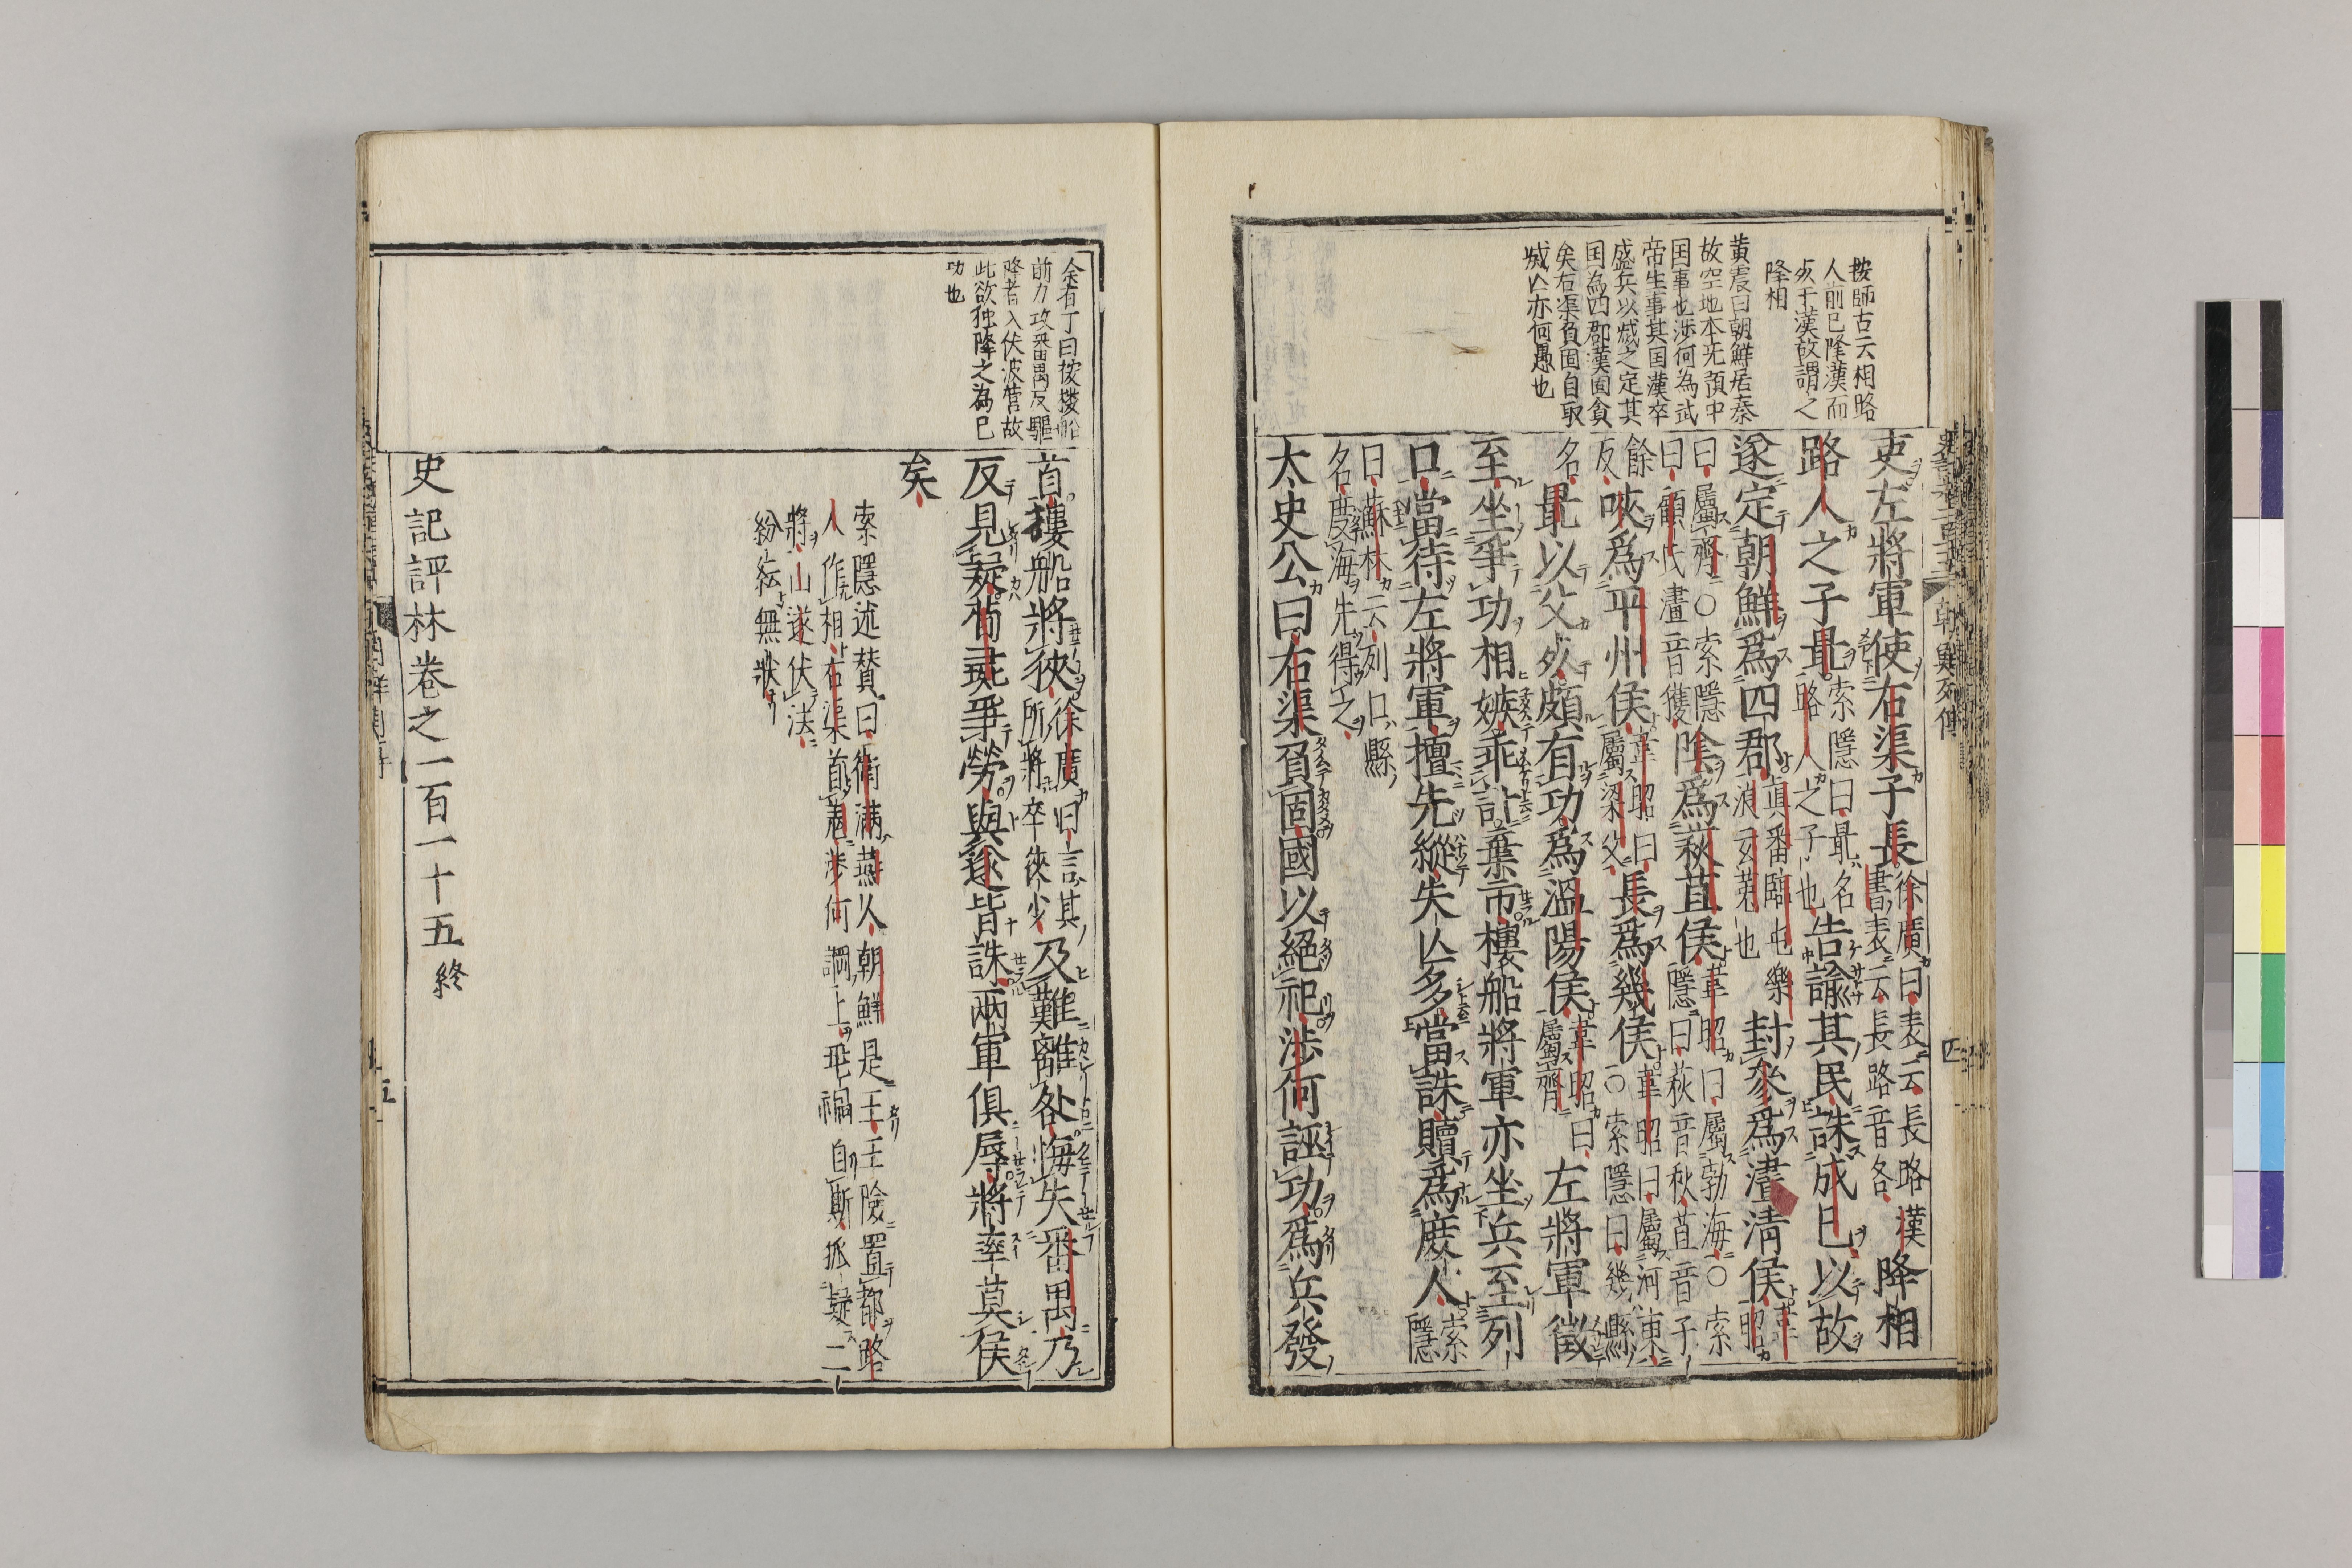 按師古云相路
人前已降漢而
死于漢故謂之
降相
黄震曰朝鮮居秦
故空地本先預中
国事也渉何為武
帝生事其国漢卒
盛兵以滅之定其
国為四郡漢固貪
矣右渠負固自取
滅亾亦何愚也
吏左將軍使右渠子長徐廣曰表云長路漢書表云長路音各降相
路人之子最索隱曰最名路人之子也告諭其民誅成巳以故
遂定朝鮮爲四郡真番臨屯樂浪玄菟也封參爲澅清侯韋昭
曰屬齊○索隱曰顧氏澅音獲陰爲萩苴侯韋昭曰屬勃海○索隱曰萩音秋苴音子
餘反唊爲平州侯韋昭曰屬梁父長爲幾侯韋昭曰屬河東○索隱曰幾縣
名最以父死頗有功爲溫陽侯韋昭曰屬齊左將軍徵
至坐爭功相嫉乖計棄市樓船將軍亦坐兵至列
口當待左將軍擅先縱失亾多當誅贖爲庶人索隱
曰蘇林云列口縣名度海先得之
太史公曰右渠負固國以絕祀渉何誣功爲兵發
余有丁曰按樓船
前力攻番禺反驅
降者入伏波營故
此欲独降之為已
功也
首樓船將狹徐廣曰言其所將卒狹少及難離咎悔失番禺乃
反見疑荀彘爭勞與遂皆誅兩軍俱辱將率莫侯
矣
索隱述賛曰衛滿燕人朝鮮是王王險置都路
人作相右渠首差渉何誷上兆禍自斯狐疑二
將山遂伏法
紛紜無狀
史記評林卷之一百一十五終